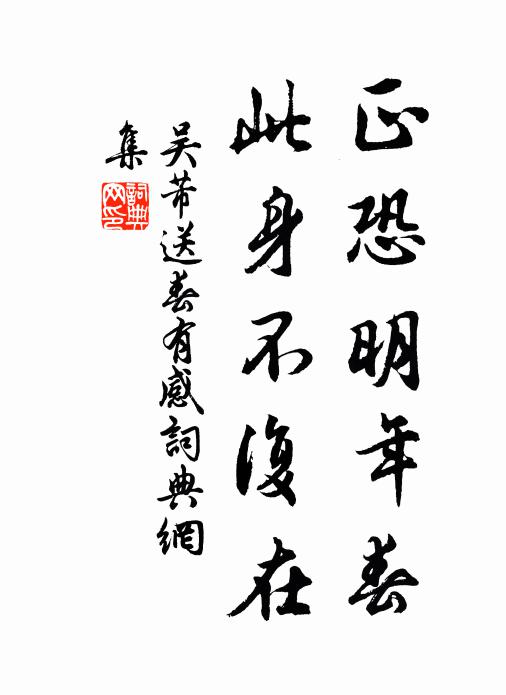 正恐明年春
此身不復在
吳芾送春有感詞典網
集
詞典
网印